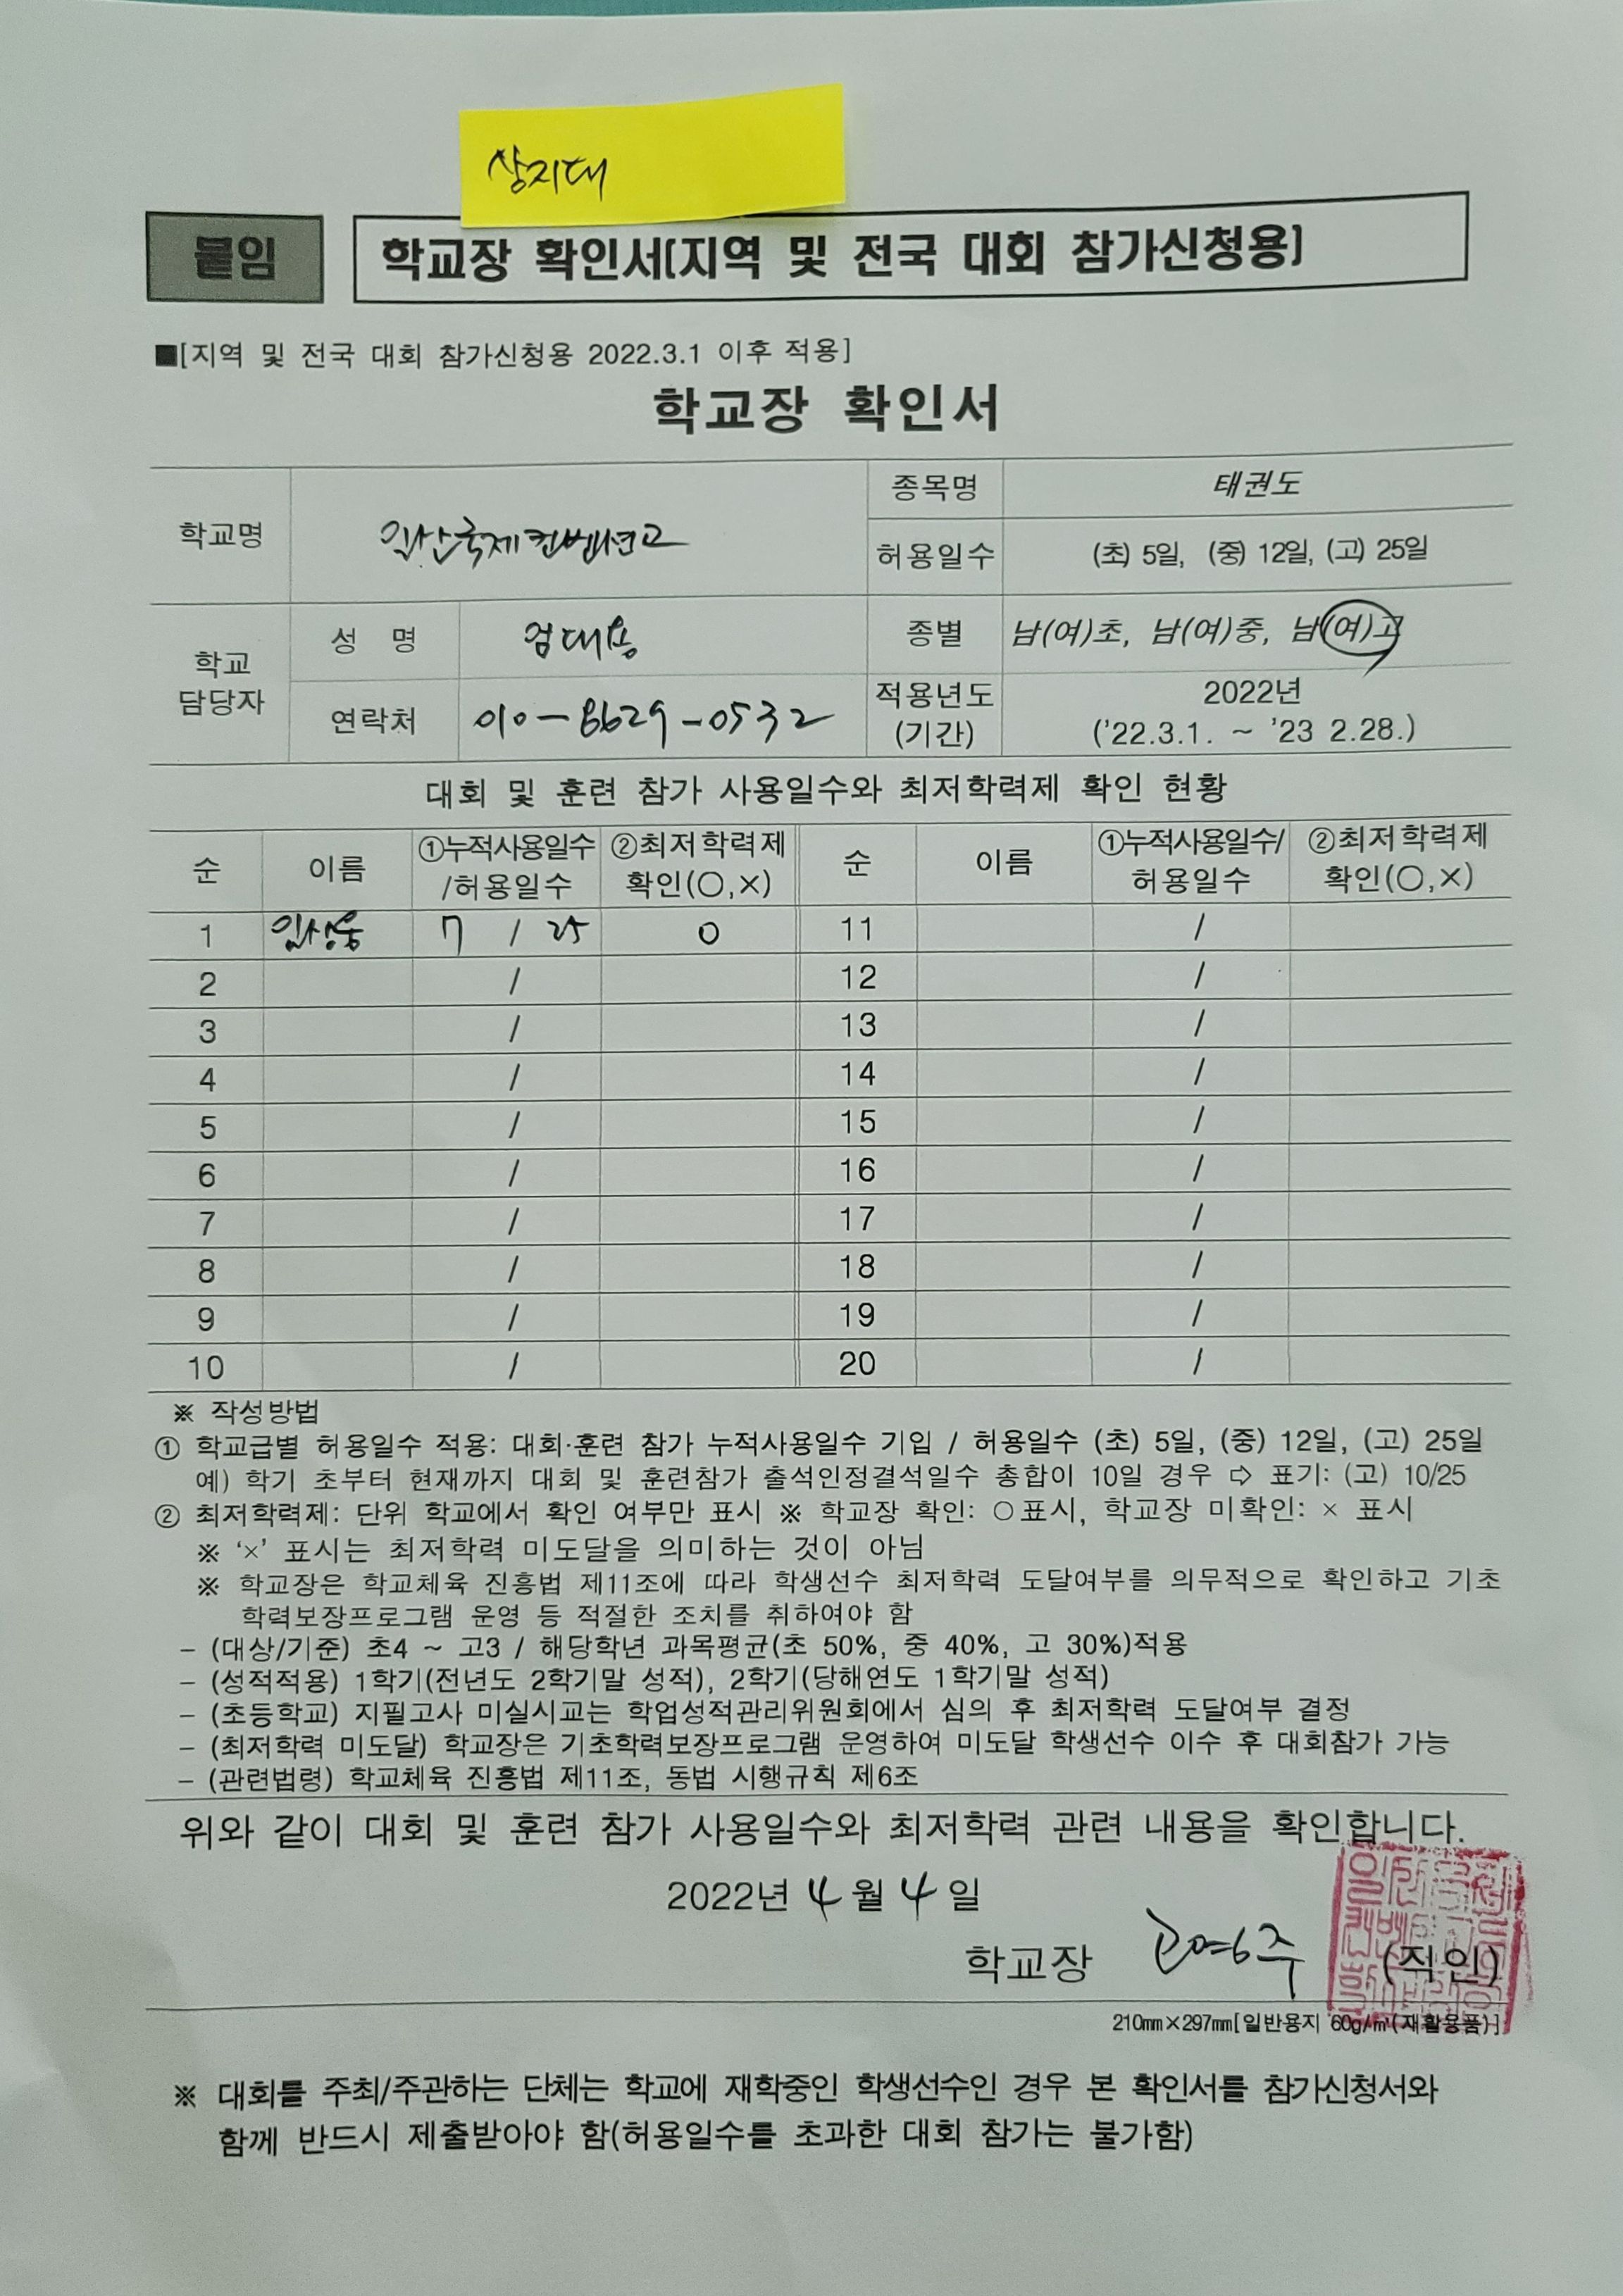 상지대
붙임
학교장 확인서[지역 및 전국 대회 참가신청용]
■[지역 및 전국 대회 참가신청용 2022.3.1 이후 적용]
학교장 확인서
학교명 일산국제컨벤션고 종목명 태권도
허용일수 (초) 5일, (중) 12일, (고) 25일
학교 담당자 성 명 엄대용 종별 남(여)초, 남(여)중, 남(여)고
연락처 010-8629-0532 적용년도 (기간) 2022년 ('22.3.1. ~ '23 2.28.)
대회 및 훈련 참가 사용일수와 최저학력제 확인 현황
순 이름 ①누적사용일수/허용일수 ②최저학력제 확인(○,×) 순 이름 ①누적사용일수/허용일수 ②최저학력제 확인(○,×)
1 7 / 25 O 11 /
2 / 12 /
3 / 13 /
4 / 14 /
5 / 15 /
6 / 16 /
7 / 17 /
8 / 18 /
9 / 19 /
10 / 20 /
※ 작성방법
① 학교급별 허용일수 적용: 대회·훈련 참가 누적사용일수 기입 / 허용일수 (초) 5일, (중) 12일, (고) 25일
예) 학기 초부터 현재까지 대회 및 훈련참가 출석인정결석일수 총합이 10일 경우 ⇨ 표기: (고) 10/25
② 최저학력제: 단위 학교에서 확인 여부만 표시 ※ 학교장 확인: ○표시, 학교장 미확인: × 표시
※ '×' 표시는 최저학력 미도달을 의미하는 것이 아님
※ 학교장은 학교체육 진흥법 제11조에 따라 학생선수 최저학력 도달여부를 의무적으로 확인하고 기초
학력보장프로그램 운영 등 적절한 조치를 취하여야 함
- (대상/기준) 초4 ~ 고3 / 해당학년 과목평균(초 50%, 중 40%, 고 30%)적용
- (성적적용) 1학기(전년도 2학기말 성적), 2학기(당해연도 1학기말 성적)
- (초등학교) 지필고사 미실시교는 학업성적관리위원회에서 심의 후 최저학력 도달여부 결정
- (최저학력 미도달) 학교장은 기초학력보장프로그램 운영하여 미도달 학생선수 이수 후 대회참가 가능
- (관련법령) 학교체육 진흥법 제11조, 동법 시행규칙 제6조
위와 같이 대회 및 훈련 참가 사용일수와 최저학력 관련 내용을 확인합니다.
2022년 4월 4일
학교장 (직인)
210㎜×297㎜[일반용지 60g/㎡(재활용품)]
※ 대회를 주최/주관하는 단체는 학교에 재학중인 학생선수인 경우 본 확인서를 참가신청서와
함께 반드시 제출받아야 함(허용일수를 초과한 대회 참가는 불가함)